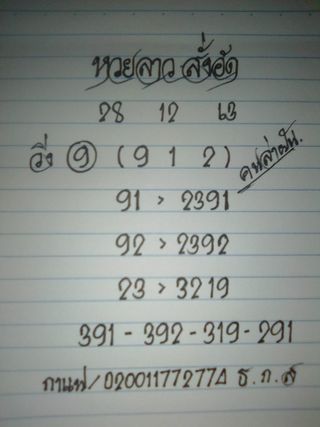 หวยลาว สั่งอัด
28 12 63
วิ่ง 9 ( 9 1 2 )
คนล่าฝัน.
91 > 2391
92 > 2392
23 > 3219
391 - 392 - 319 - 291
กาแฟ / 020011772774 ธ.ก.ส